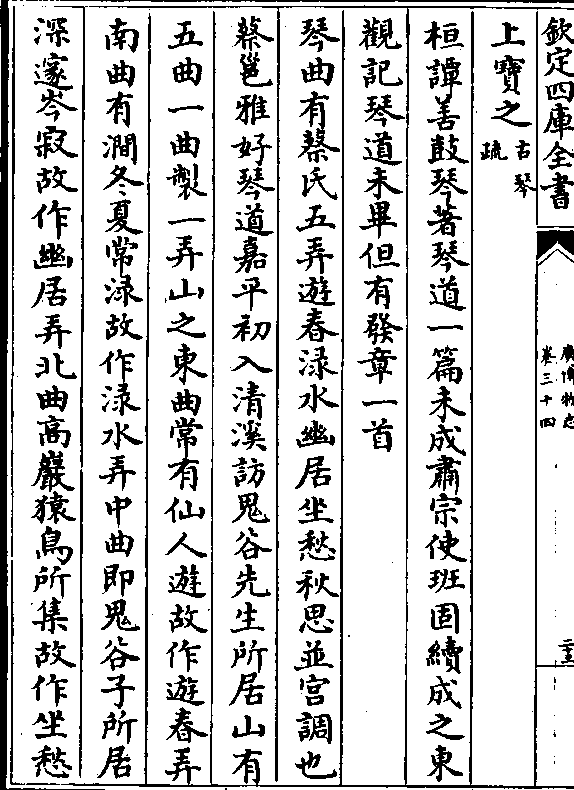 欽定四庫全書
廣博物志
卷三十四
上寶之古琴疏
桓譚善鼓琴著琴道一篇未成肅宗使班固續成之東
觀記琴道未畢但有發章一首
琴曲有蔡氏五弄遊春渌水幽居坐愁秋思並宮調也
蔡邕雅好琴道嘉平初入清溪訪鬼谷先生所居山有
五曲一曲製一弄山之東曲常有仙人遊故作遊春弄
南曲有澗冬夏常渌故作渌水弄中曲即鬼谷子所居
深邃岑寂故作幽居弄北曲高巖猿鳥所集故作坐愁